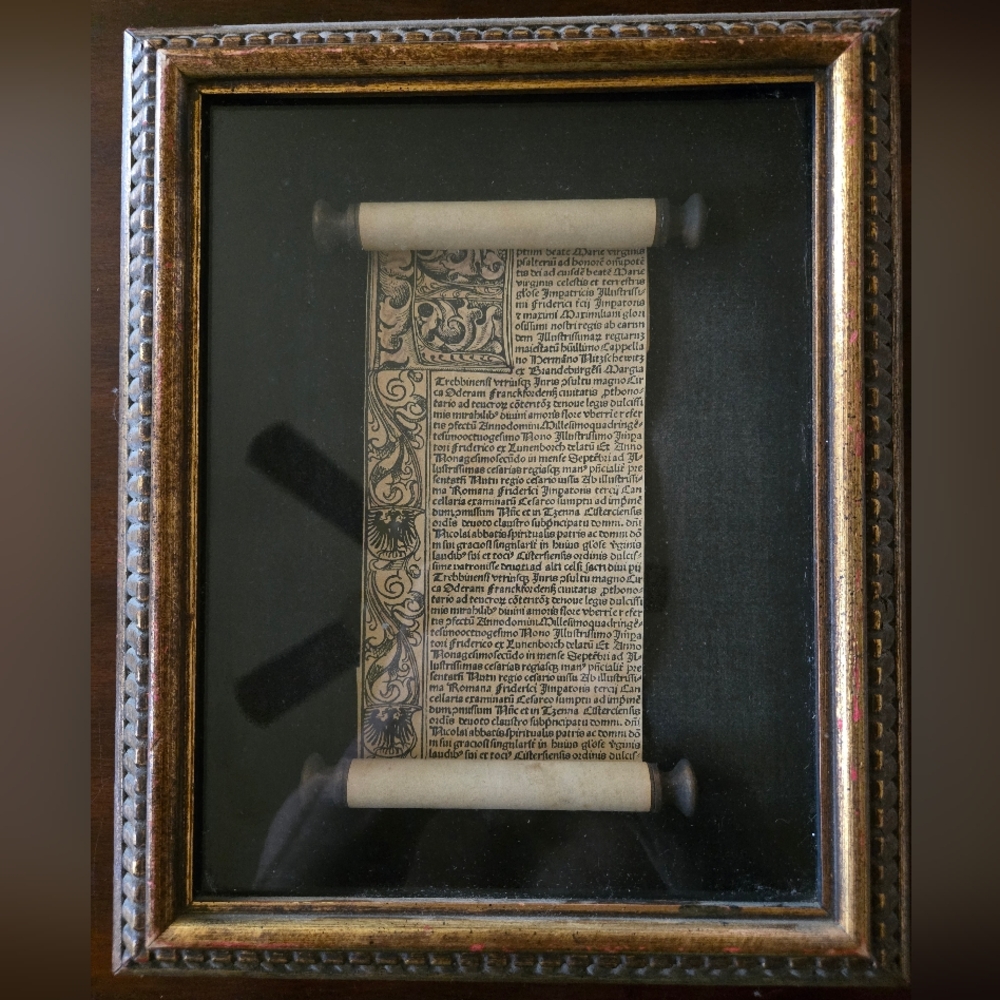 ptum beate Marie virginis
psalteriū ad honorē om̄ipotē
tis dei ad eiusdē beatē Marie
virginis celestis et terrestris
glose Impatricis Illustrissi-
mi friderici tcij Impatoris
⁊ maximi Maximiliani glori
osissimi nostri regis ab earun
dem Illustrissimaꝝ regiarūꝫ
maiestatū hūillimo Cappella
no Hermāno Nitzschewitz
ex Brandeburgēsi Margia
Trebbinensi vtriusqꝫ Juris ꝯsultu magno Cir
ca Oderam Franckfordenꝫ ciuitatis ꝓthono-
tario ad teucroꝝ cōtentōꝫ denoue legis dulcissi
mis mirabilibꝰ diuini amoris flore vberri⁊ refer
tis ꝓfectū Annodomini Millesimoquadringē-
tesimooctuogesimo Nono Illustrissimo Impa
tori friderico ex Lunenborch delatū Et Anno
Nonagesimosecūdo in mense Septēbri ad Il-
lustrissimas cesarias regiasqꝫ manꝰ pn̄cialiē pre
sentatū Nutu regio cesario iussu Ab illustrissi-
ma Romana friderici Impatoris tercij Can
cellaria examinatū Cesareo sumptu ad impn̄mē
dum ꝓmissum Nūc et in Tzenna Cisterciensis
ordis deuoto claustro subp̄ncipatu domni. dn̄i
Nicolai abbatis spiritualis patris ac domni dō
m sui graciosi singularis in huius glose v̓ginis
laudibꝰ sui et tociꝰ Cistersiensis ordinis dulcis-
sime patronisse deuoti ad alti celsi sacri diui pii
Trebbinensi vtriusqꝫ Juris ꝯsultu magno Cir
ca Oderam Franckfordenꝫ ciuitatis ꝓthono-
tario ad teucroꝝ cōtentōꝫ denoue legis dulcissi
mis mirabilibꝰ diuini amoris flore vberri⁊ refer
tis ꝓfectū Annodomini Millesimoquadringē-
tesimooctuogesimo Nono Illustrissimo Impa
tori friderico ex Lunenborch delatū Et Anno
Nonagesimosecūdo in mense Septēbri ad Il-
lustrissimas cesarias regiasqꝫ manꝰ pn̄cialiē pre
sentatū Nutu regio cesario iussu Ab illustrissi-
ma Romana friderici Impatoris tercij Can
cellaria examinatū Cesareo sumptu ad impn̄mē
dum ꝓmissum Nūc et in Tzenna Cisterciensis
ordis deuoto claustro subp̄ncipatu domni. dn̄i
Nicolai abbatis spiritualis patris ac domni dō
m sui graciosi singularis in huius glose v̓ginis
laudibꝰ sui et tociꝰ Cistersiensis ordinis dulcis